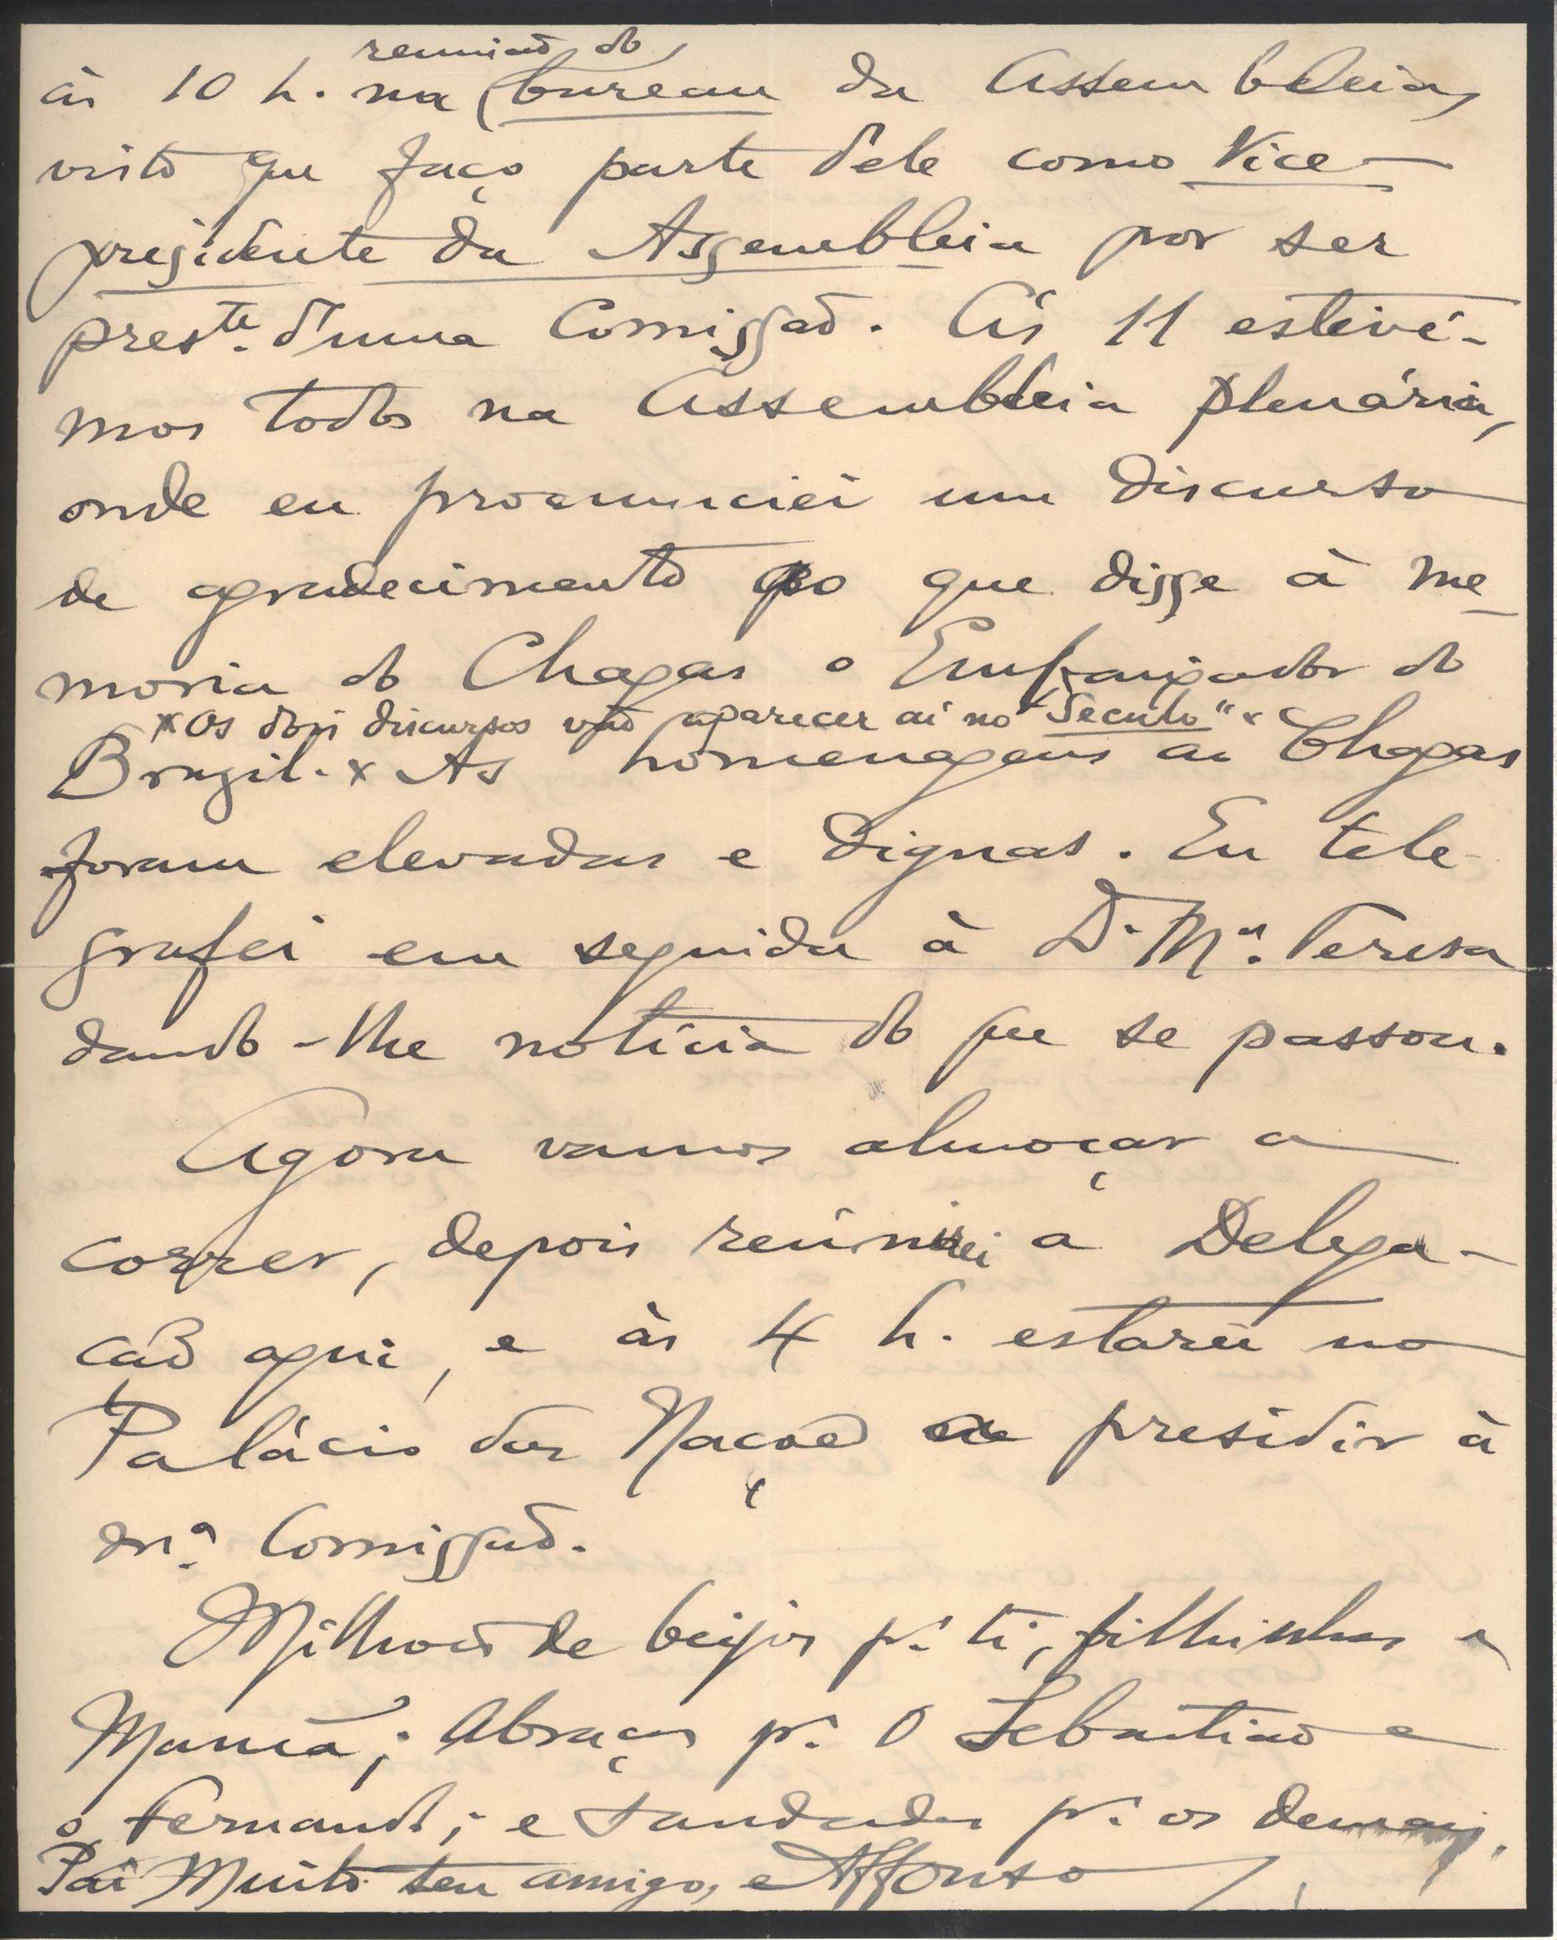 reunião do
às 10 h. na bureau da Assembleia,
visto que faço parte dele como Vice-
presidente da Assembleia por ser
pres.te d'uma Comissão. Às 11 estive-
mos todos na Assembleia plenária,
onde eu pronunciei um discurso
de agradecimento ao que disse à me-
moria do Chagas o Embaixador do
x Os dois discursos vão aparecer aí no "Seculo" x
Brazil. x As homenagens ao Chagas
foram elevadas e dignas. Eu tele-
grafei em seguida à D. M.a Teresa
dando-lhe notícia do que se passou.
Agora vamos almoçar a
correr, depois reúnirei a Delega-
ção aqui, e às 4 h. estarei no
Palácio das Nações a presidir à
m.a Comissão.
Milhões de beijos p.a ti, filhinhos e
Mamã; Abraços p.a o Sebastião e
o Fernando; e saudades p.a os demais.
Pai Muito teu amigo, Affonso